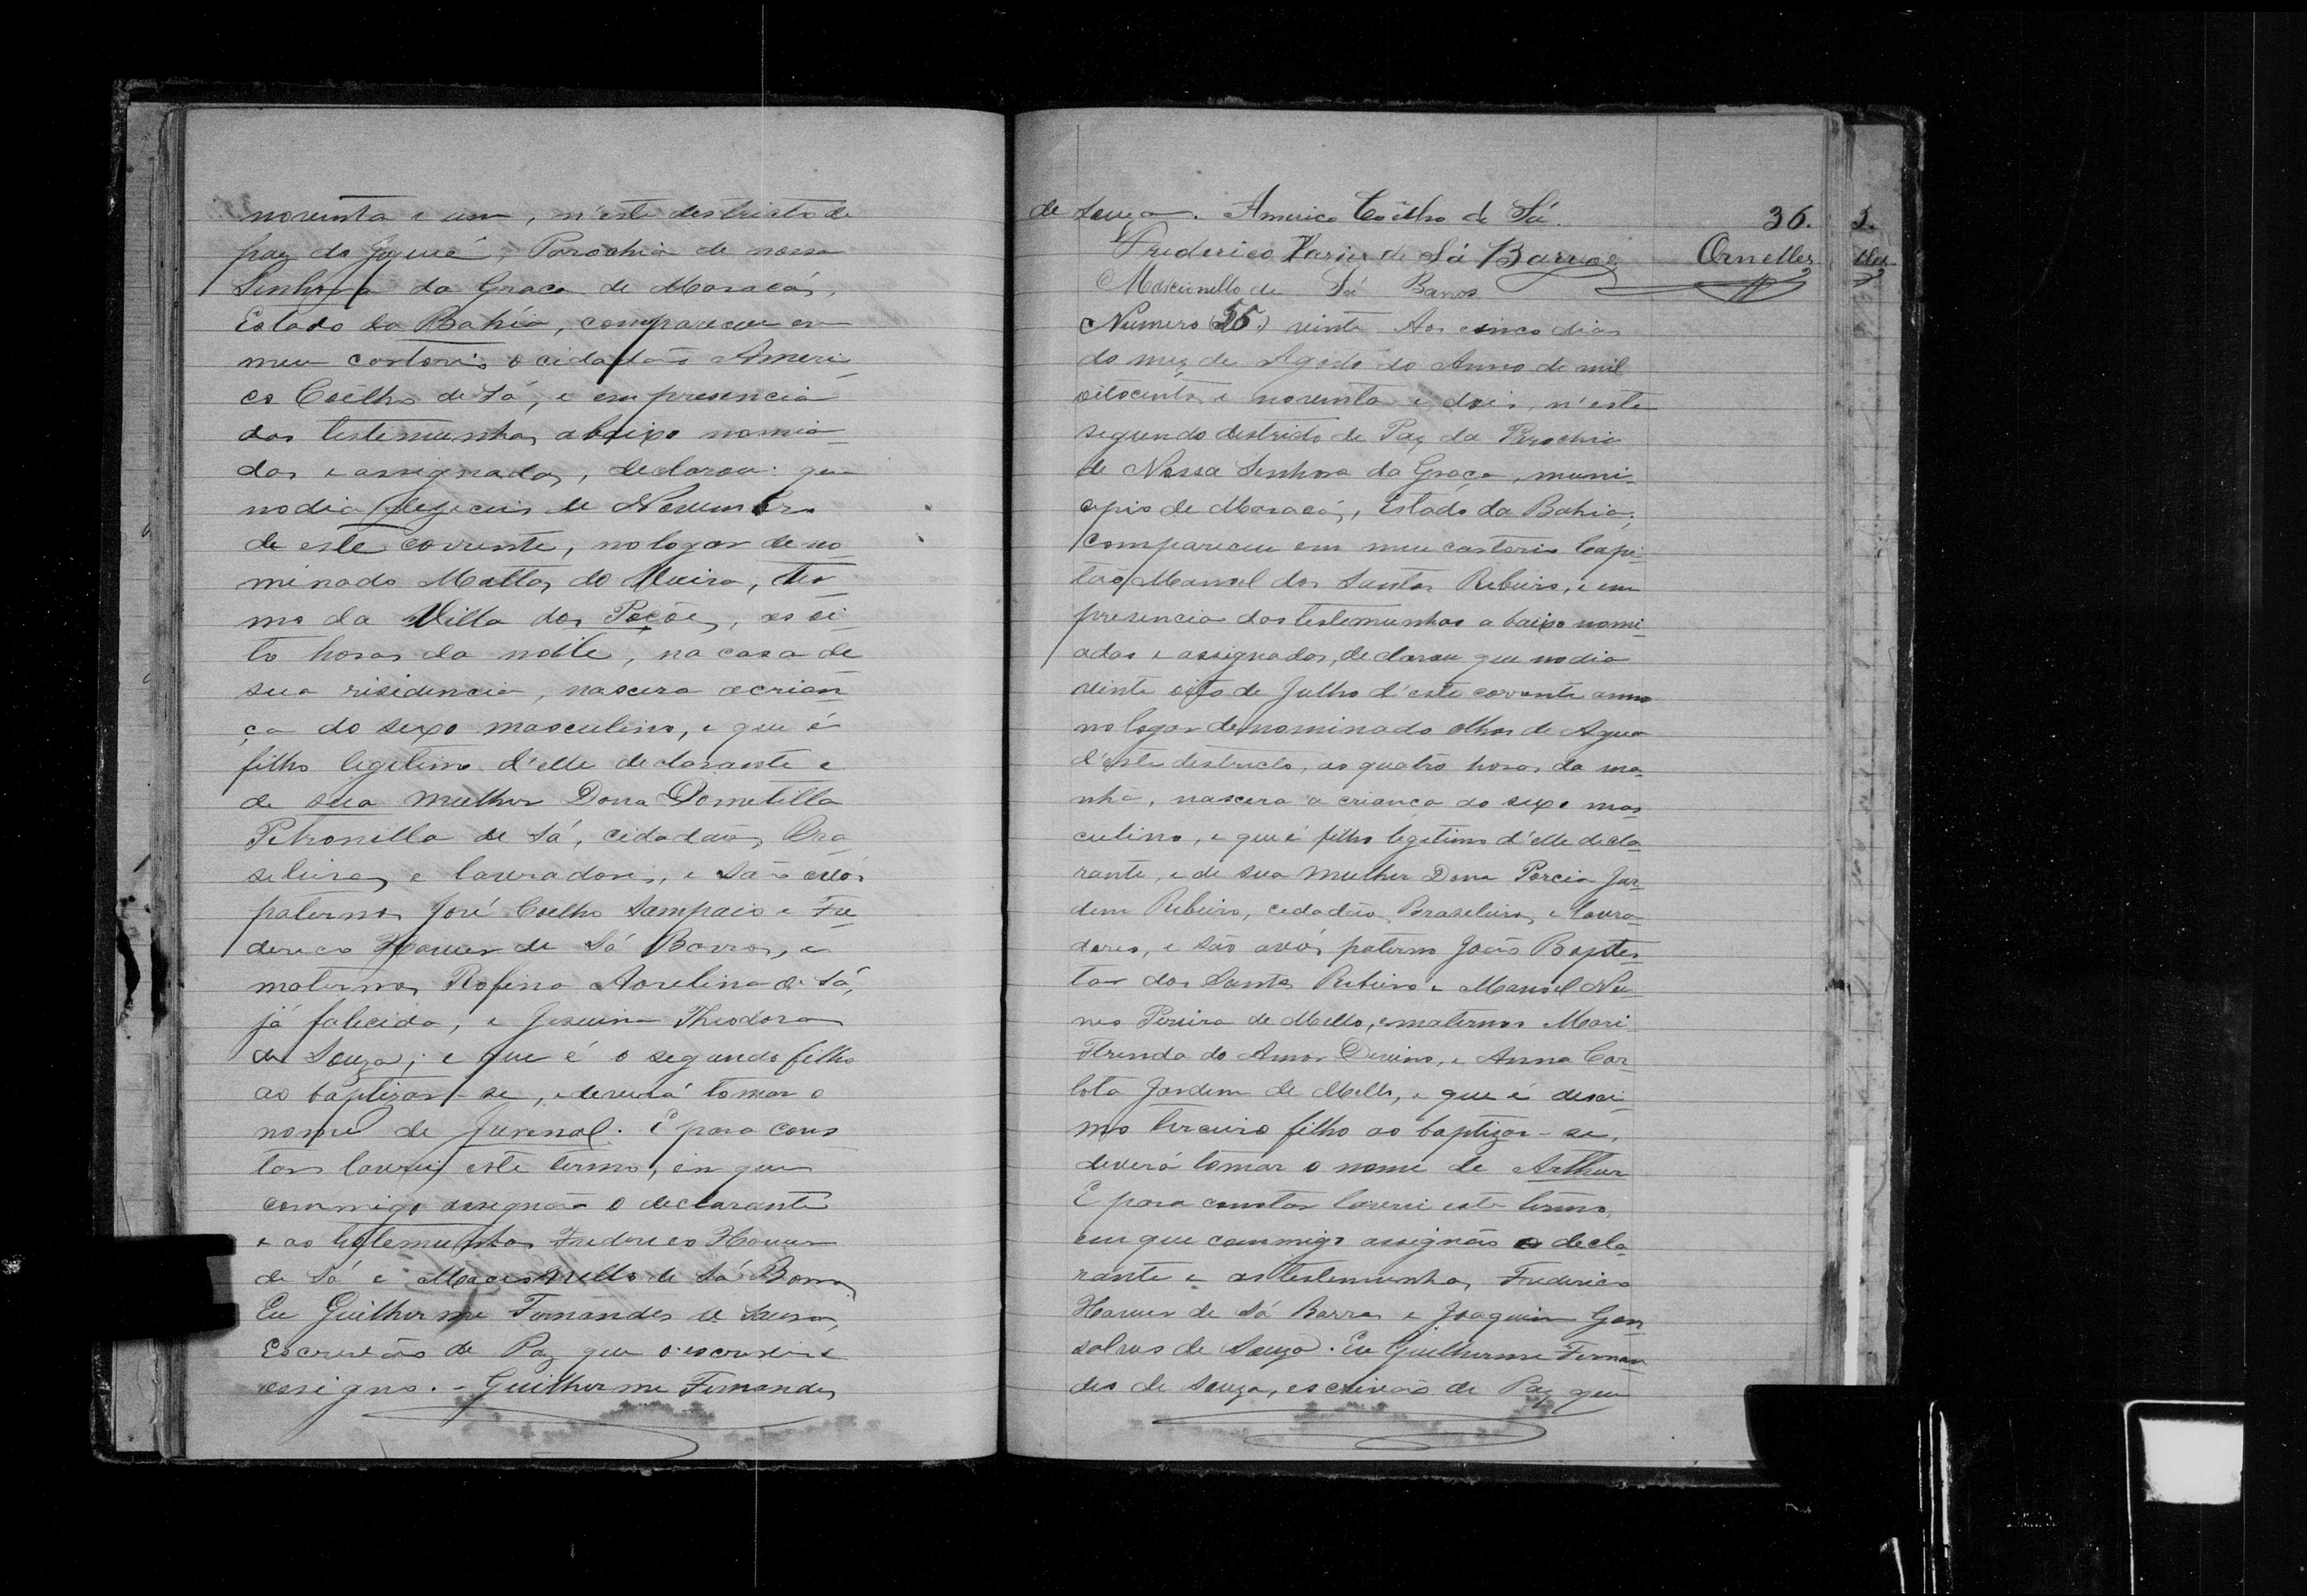 noventa e um, n'este destricto de
paz do Jiquié, Parochia de nossa
Senhora da Graca de Maracás,
Estado da Bahia, compareceu em
meu cartorio o cidadão Ameri-
co Coêlho de Sá, e em presencia
das testemunhas abaixo nomia-
das e assignadas, declarou: que
no dia dezeceis de Novembro
de este corrente, no logar deno-
minado Mattas do , ter-
mo da Villa dos Poções, as oi-
to horas da noite, na casa de
sua risidencia, nascera a crian-
ça do sexo masculino, e que é
filho legitimo d'elle declarante e
de sua mulher Dona Dometilla
Petronilla de Sá, cidadãos Bra-
seleiros e lavradores, e são avós
paternos José Coelho Sampaio e Fre-
derico Xavier de Sá Barros, e
maternos Rofina Aorelina de Sá,
já falecida, e Jesuina Theodora
de Souza; e que é o segundo filho
ao baptizar-se, e deverá tomar o
nome de Juvenal. E para cons-
tar lavrei este termo, em que
commigo assignão o declarante
e as testemunhas Frederico Xavier
de Sá e Marcionillo de Sá Barros
Eu Guilherme Fernandes de Souza,
Escrivão de Paz que o escrevi e
assigno. - Guilherme Fernandes
de Souza. Americo Coêlho de Sá.
36.
Frederico Xavier de Sá Barros
Ornelles
Marcionillo de Sá Barros
Numero (55.) vinte Aos cinco dias
do mez de Agosto do Anno de mil
oitocentos e noventa e dois, n'este
segundo destricto de Paz da Parochia
de Nossa Senhora da Graça, muni-
cipio de Maracás, Estado da Bahia,
compareceu em meu cartorio Capi-
tão Manoel dos Santos Ribeiro, e em
presencia das testemunhas abaixo nomi-
adas e assignadas, declarou que no dia
vinte oito de Julho d'este corrente anno
no logar denominado olhos de Agua
d'este destricto, as quatro horas da ma-
nhã, nascera a criança do sexo mas-
culino, e que é filho legitimo d'elle decla-
rante, e de sua mulher Dona Porcia Jar-
dim Ribeiro, cedadãos Braseleiros e lavra-
dores, e são avós paternos João Baptis-
ta dos Santos Ribeiro e Manoel Nu-
nes Pereira de Mello, e maternos Mari
Florinda do Amor Devino, e Anna Car-
lota Jardim de Mello, e que é deci-
mo terceiro filho ao baptizar-se,
deverá tomar o nome de Arthur
E para constar lavrei este termo,
em que commigo assignão o decla-
rante e as testemunhas Frederico
Xavier de Sá Barros e Joaquim Gon-
salves de Souza. Eu Guilherme Fernan-
des de Souza, escrivão de Paz que